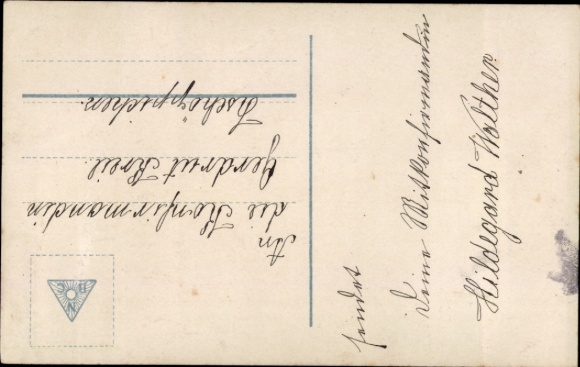 An
die Konfirmandin
Gerdrut Kreil
Zschöppichen.
sendet
Deine Mitkonfirmandin
Hildegard Walther